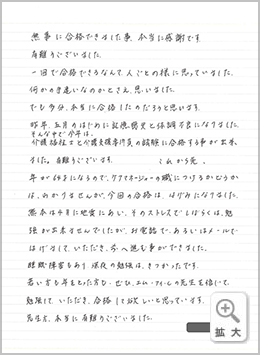 無事に合格できました事、本当に感謝です
有難うございました。
一回で合格できるなんて、人ごとの様に思っていました。
何かのまちがいなのかとさえ、思いました。
でも多分、本当に合格したのだろうと思います。
昨年、五月のはじめに記憶障害と体調不良になりました。
そんな中で今年は、
介護福祉士と介護支援専門員の試験に合格する事が出来
ました。有難うございます。 これから先、
年が64才になるので、ケアマネージャーの職につけるかどうか
は、わかりませんが、今回の合格は、はげみになりました。
熊本は4月に地震にあい、そのストレスでしばらくは、勉
強が出来ませんでしたが、お電話で、あるいはメールで
はげまして、いただき、本へ進む事ができました。
睡眠障害もあり 深夜の勉強は、きつかったです。
若い方も年をとった方も、ぜひ、エム・フィールの先生を信じて、
勉強して、いただき、合格して欲しいと思っています。
先生方、本当に有難うございました。
拡大